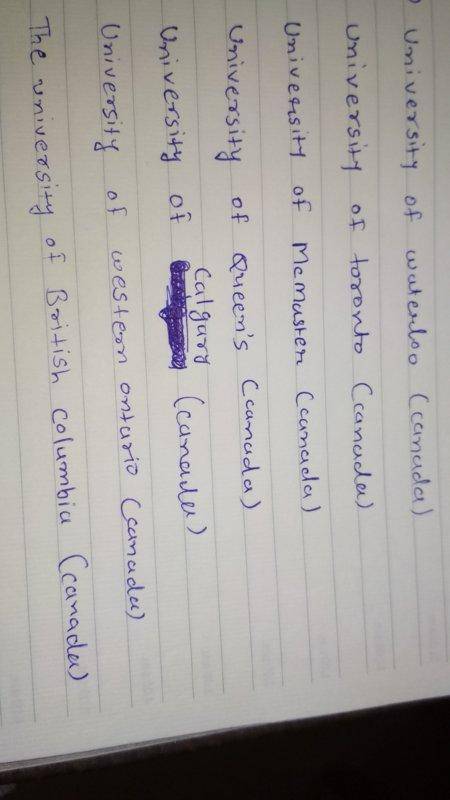 University of waterloo (canada)
University of toronto (canada)
University of McMaster (canada)
University of Queen's (canada)
University of Calgary (canada)
University of western ontario (canada)
The university of British columbia (canada)